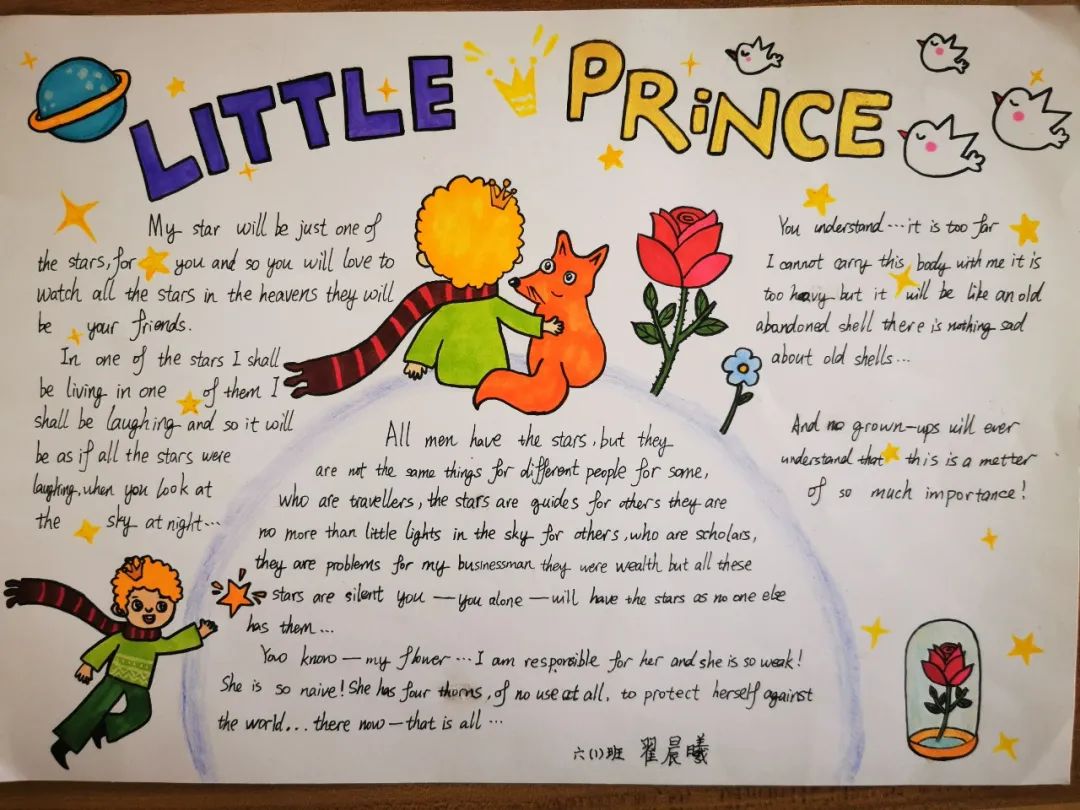 LITTLE PRiNCE
My star will be just one of
the stars, for you and so you will love to
watch all the stars in the heavens they will
be your friends.
In one of the stars I shall
be living in one of them I
shall be laughing and so it will
be as if all the stars were
laughing, when you look at
the sky at night...
All men have the stars, but they
are not the same things for different people for some,
who are travellers, the stars are guides for others they are
no more than little lights in the sky for others, who are scholars,
they are problems for my businessman they were wealth but all these
stars are silent you — you alone — will have the stars as no one else
has them...
You know — my flower ... I am responsible for her and she is so weak!
She is so naive! She has four thorns, of no use at all, to protect herself against
the world... there now — that is all ...
You understand ... it is too far
I cannot carry this body with me it is
too heavy but it will be like an old
abandoned shell there is nothing sad
about old shells...
And no grown-ups will ever
understand that this is a metter
of so much importance!
六(1)班 翟晨曦